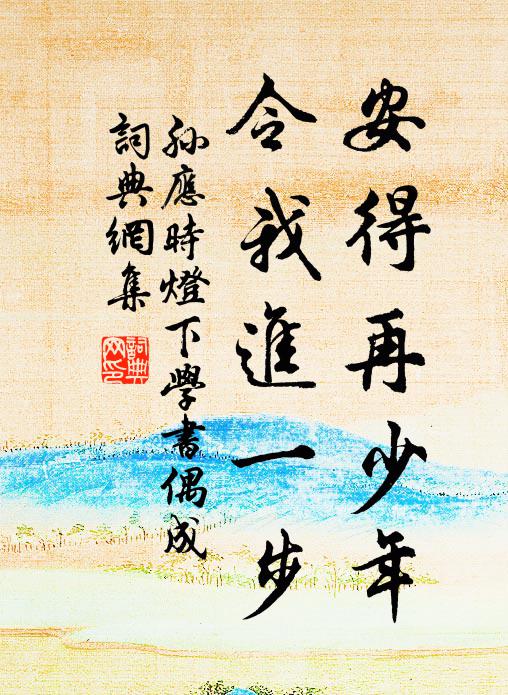 安得再少年
令我進一步
孫應時燈下學書偶成
詞典網集
詞典
网印